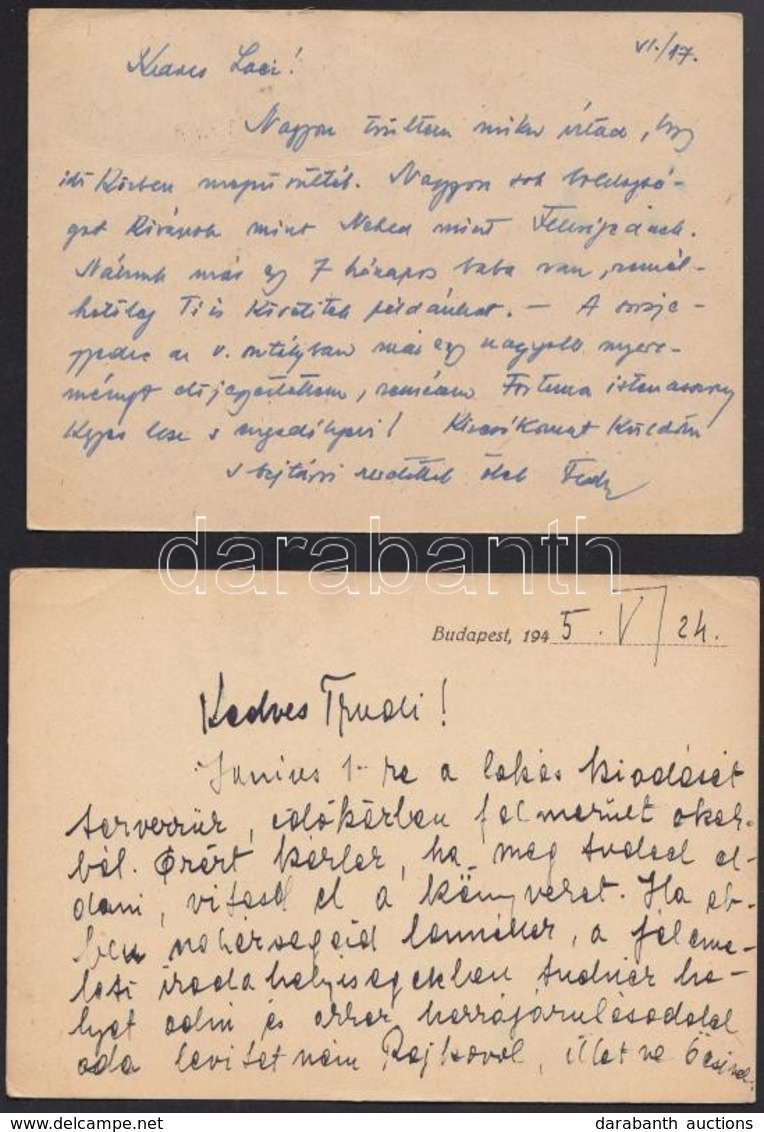 VI./17.
Kedves Laci!
Nagyon örültem mikor írtad, hogy
idő Közben megnősültél. Nagyon sok boldogsá-
got Kívánok mint Neked mint Feleségednek.
Nálunk már egy 7 hónapos baba van, remél-
hetőleg Ti is Követitek példánkat. – A
az v. osztályban már egy nagyobb nyere-
ményt, remélem Fortuna istenasszony
Kegyes lesz s engedélyezi! Kézcsókomat Küldöm
s bajtársi szeretettel ölel
darabanth
Budapest, 1945. V/24.
Kedves Trudi!
Junius 1-re a lakás kiadását
tervezzük, időközben felmerült okok-
ból. Ezért kérlek, ha meg tudod ol-
dani, vitesd el a könyveket. Ha eb-
ben nehézségeid lennének, a féleme-
leti irodahelyiségekben tudnék he-
lyet adni és ehhez hozzájárulásoddal
oda levitetném Rajkóval, illetve Öcsivel.
darabanth auctions